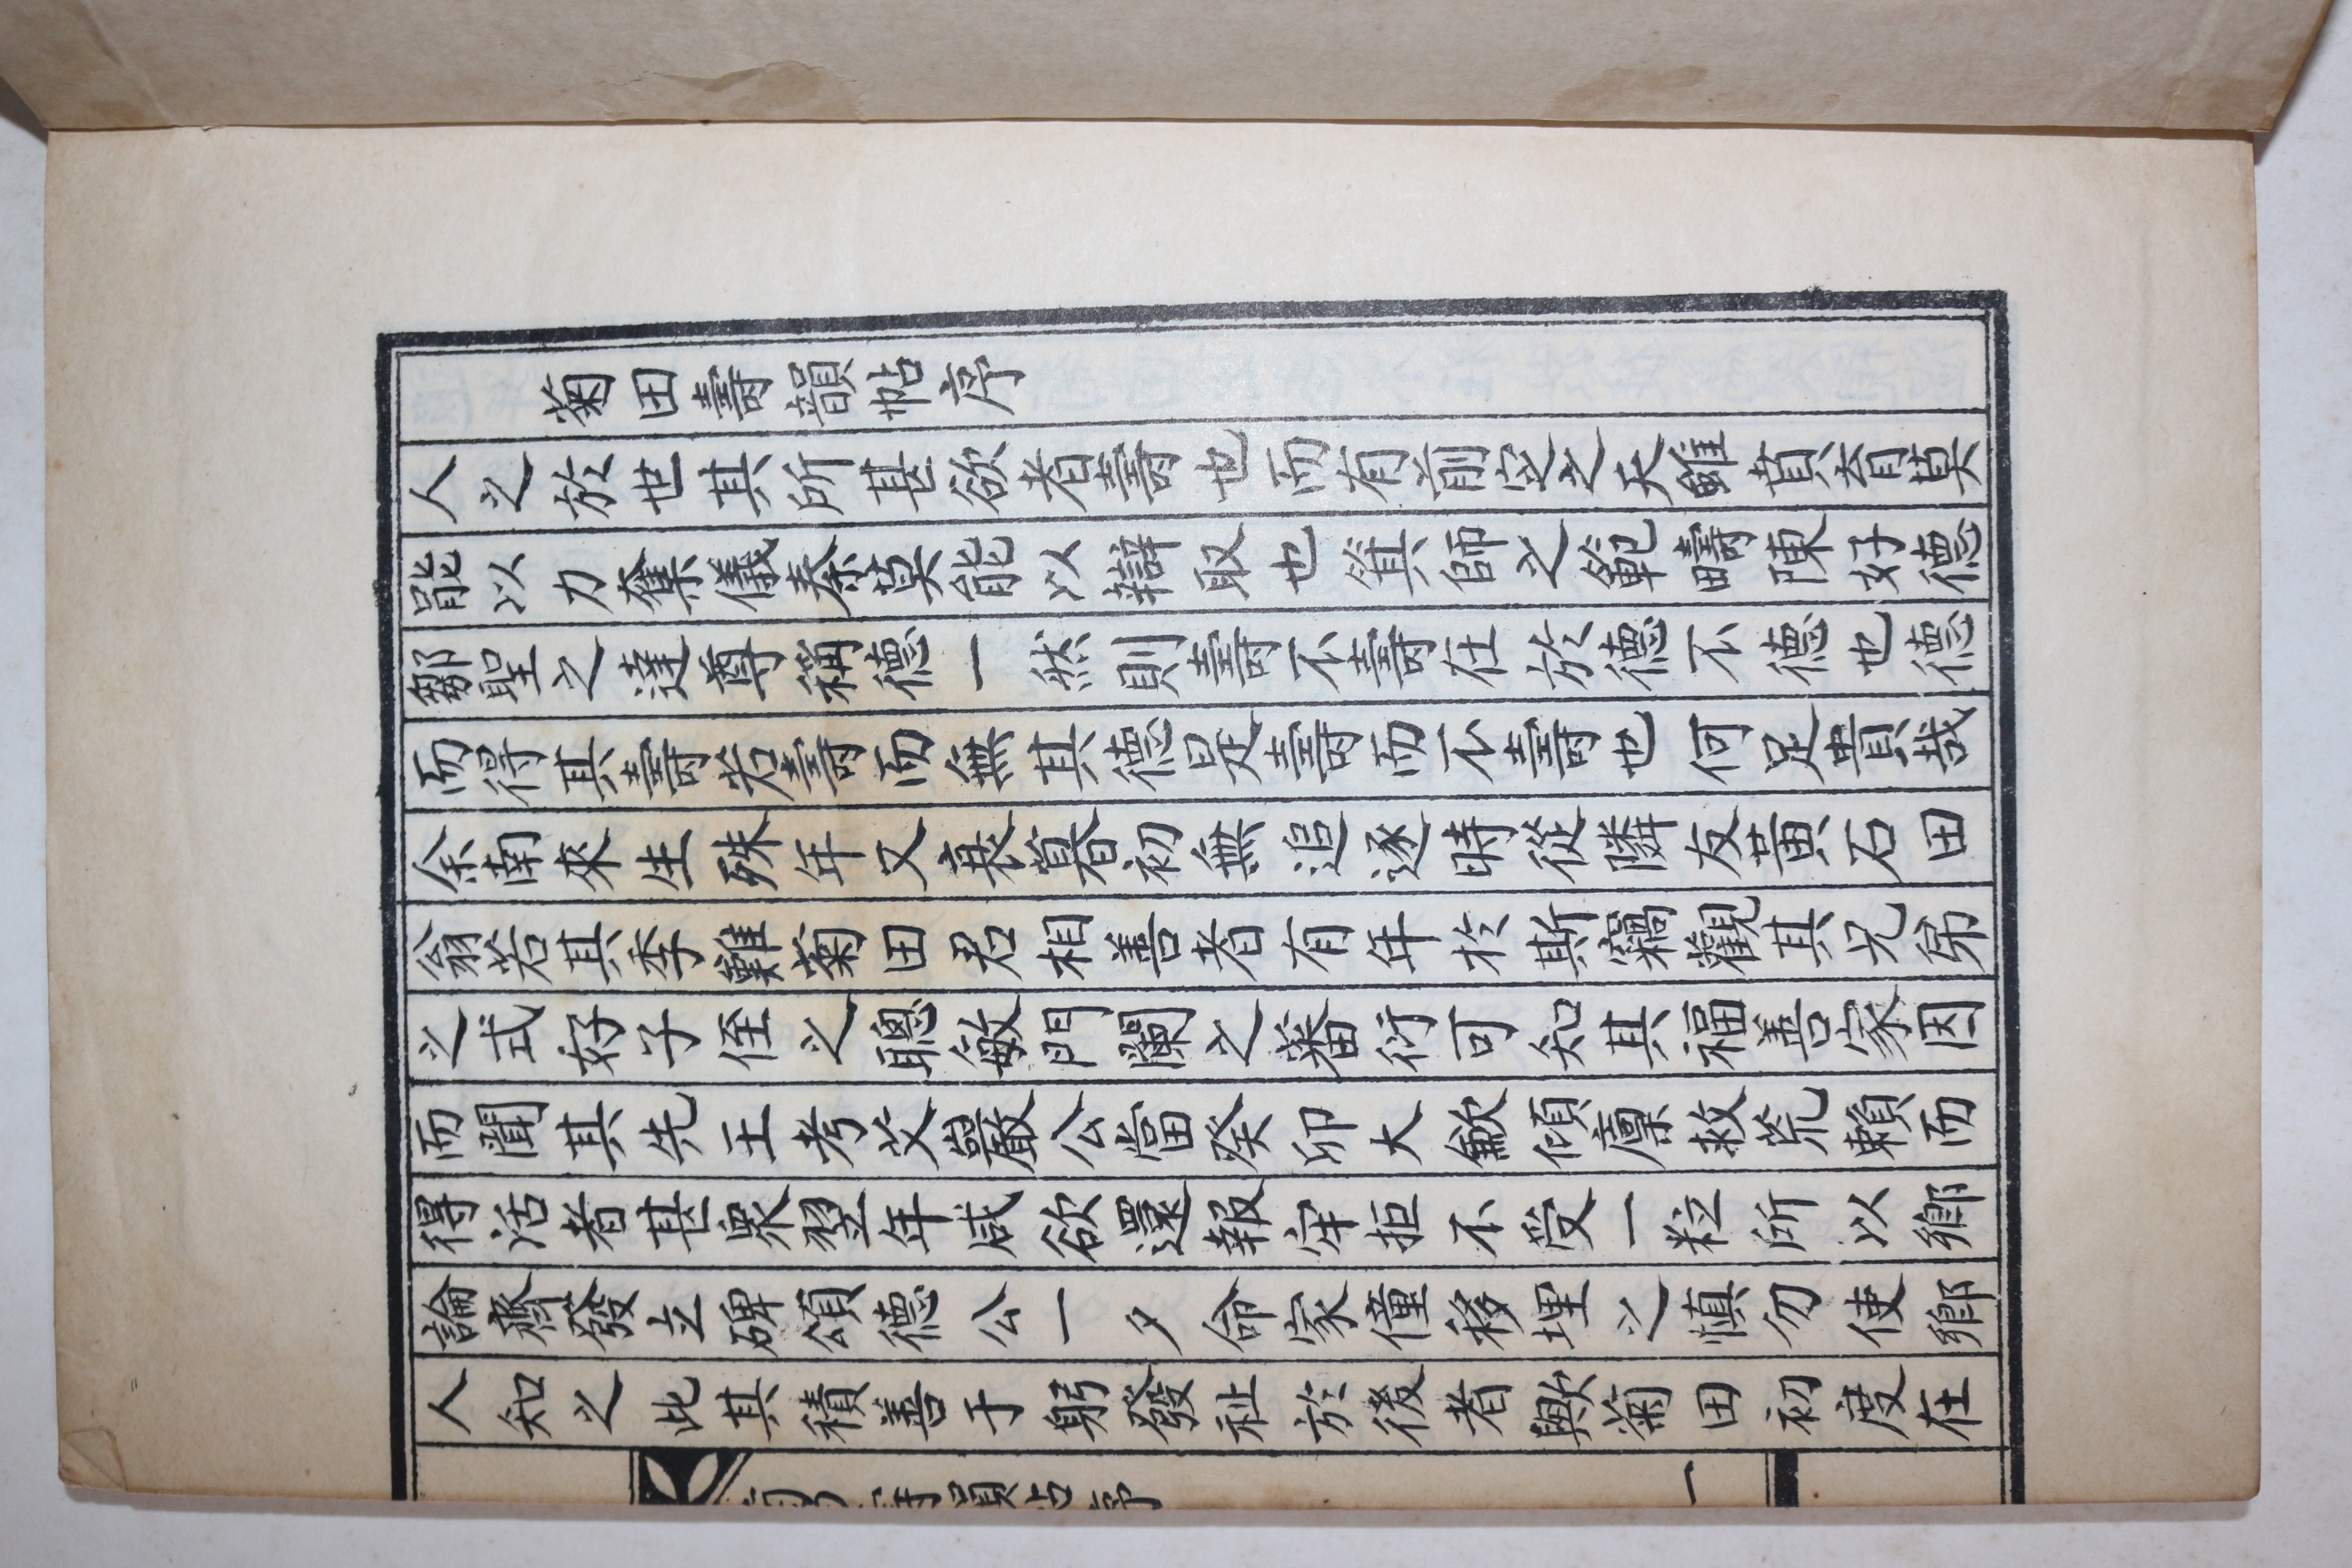 菊田壽韻帖序
人之於世其所甚欲者壽也而有前定之天雖賁育莫
能以力奪儀秦莫能以辯取也箕師之範疇陳好德
鄒聖之達尊稱德一然則壽不壽在於德不德也德
而得其壽若壽而無其德是壽而不壽也何足貴哉
余南來生殊年又衰暮初無追逐時從隣友黃石田
翁若其季難菊田君相善者有年於斯竊觀其兄弟
之式好子侄之聰敏門闌之蕃衍可知其福善家因
而聞其先王考艾巖公當癸卯大歉傾廩救荒賴而
得活者甚衆翌年咸欲還報牢拒不受一粒所以鄉
論齊發立碑頌德公一夕命家僮移埋之愼勿使鄉
人知之此其積善于躬發祉於後者歟菊田初度在
菊田壽韻帖序 一